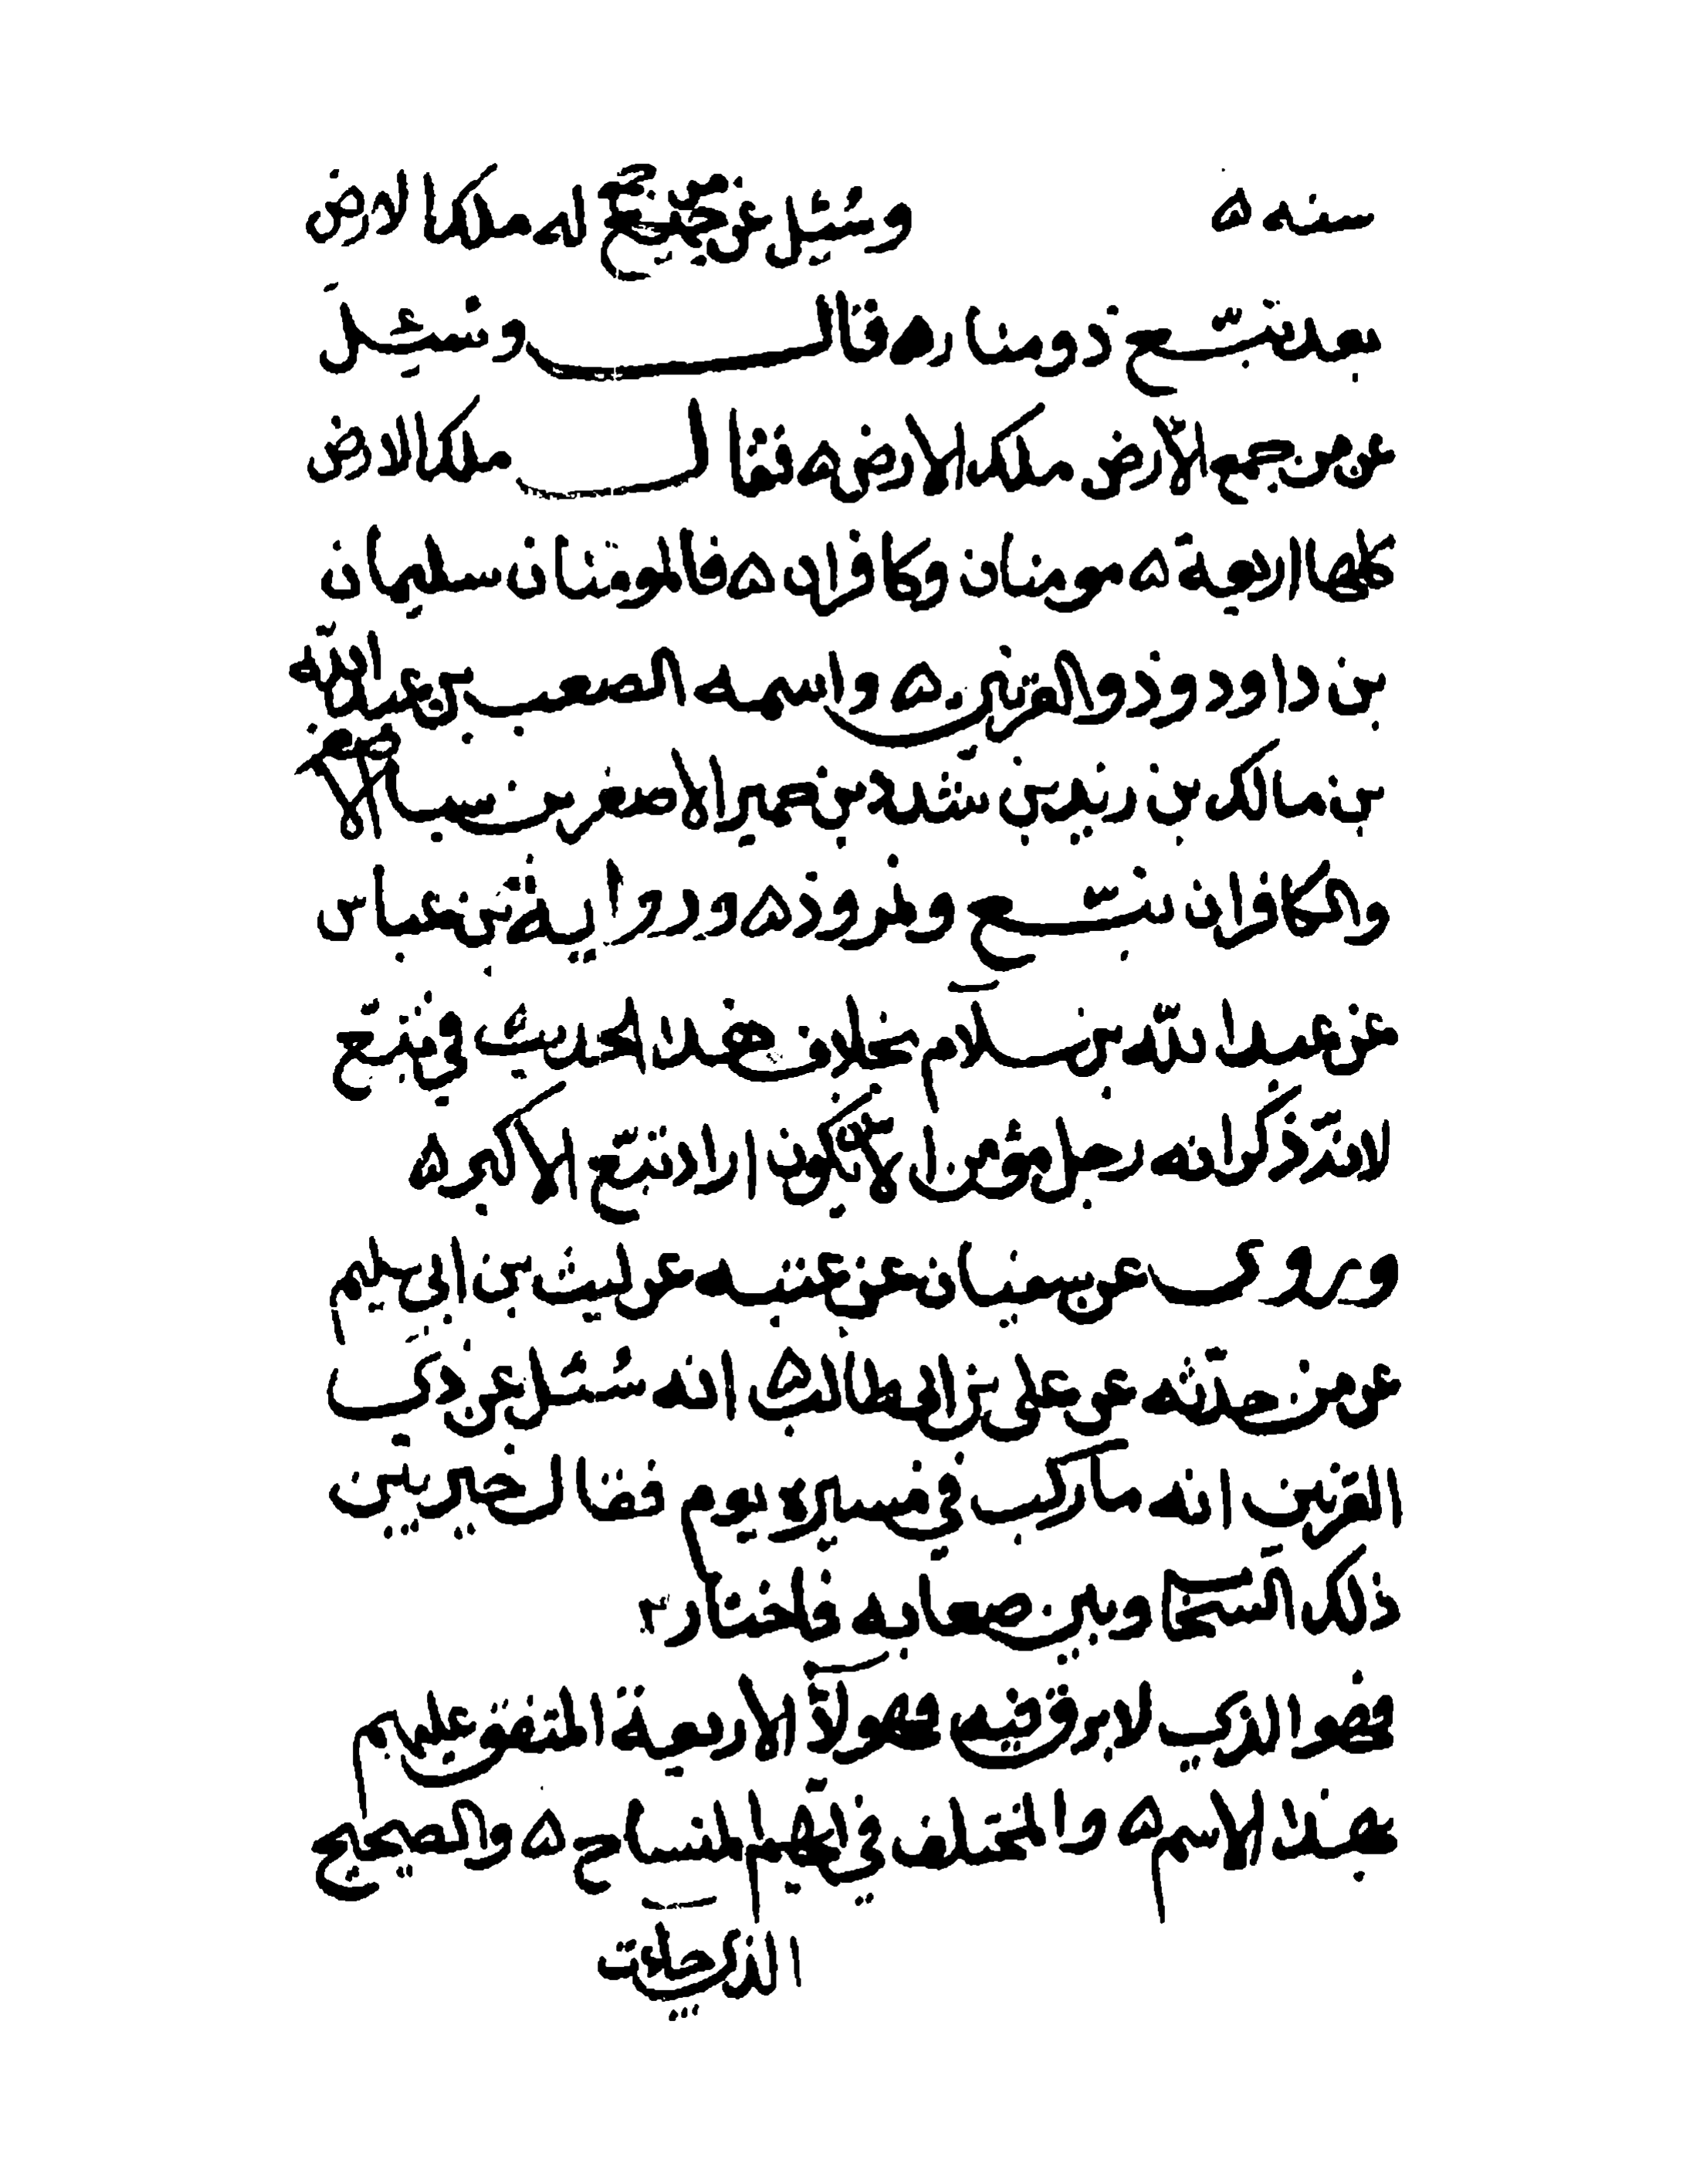 سنه ۵ وسُئِل عن من جمع له ملك الارض
بعد تبــع ذو مناره فقالــــ وسُئِــل
عن من جمع الأرض ملك الارض ۵ فقالــ ملك الارض
كلها اربعة ۵ مومنان وكافران ۵ فالمومنان سليمان
بن داود وذو القرنين ۵ واسمه الصعب بن عبدالله
بن مالك بن زيد بن شدد بن حمير الاصغر بن سبا الاصغر
والكافران تبــع ونمروذ ۵ ورواية بن عباس
عن عبد الله بن سلام بخلاف هذا الحديث في تبّع
لانه ذكر انه رجل مؤمن الا ان يكون اراد تبّع الاكبر ۵
وروى عن سفيان عن عتبه عن ليث بن ابي سليم
عن من حدّثه عن علي بن ابي طالب ۵ انه سُئـل عن ذي
القرنين انه ما ركب في مسيره يوم فقال خير بين
ذلك السحاب وبين صعابه فاختار
فهو الذي لا برق فيه فهولآ الاربعة المتفق عليهم
بهذا الاسم ۵ والمختلف في ايهم المساح ۵ والصحيح
الذي جاءت